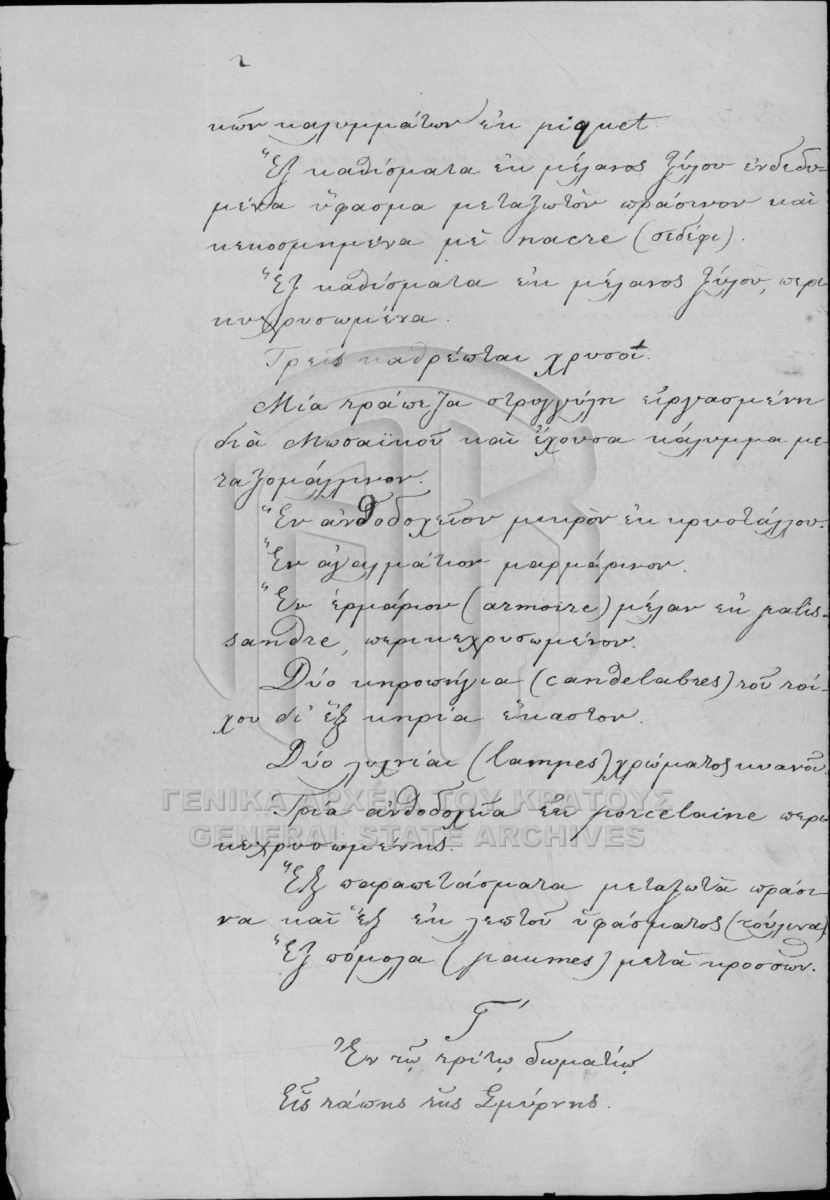 2
κῶν καλυμμάτων ἐκ piquet.
Ἕξ καθίσματα ἐκ μέλανος ξύλου ἐνδεδυ-
μένα ὕφασμα μεταξωτὸν πράσινον καὶ
κεκοσμημένα μὲ nacre (σεδέφι).
Ἕξ καθίσματα ἐκ μέλανος ξύλου, περι
κεχρυσωμένα.
Τρεῖς καθρέπται χρυσοῖ.
Μία τράπεζα στρογγύλη εἰργασμένη
διὰ Μωσαϊκοῦ καὶ ἔχουσα κάλυμμα με-
ταξομάλλινον.
Ἕν ἀνθοδοχεῖον μικρὸν ἐκ κρυστάλλου.
Ἕν ἀγαλμάτιον μαρμάρινον.
Ἕν ἑρμάριον (armoire) μέλαν ἐκ palis-
sandre, περικεχρυσωμένον.
Δύο κηροπήγια (candelabres) τοῦ τοί-
χου δι' ἕξ κηρία ἕκαστον.
Δύο λυχνίαι (lampes) χρώματος κυανοῦ.
Τρία ἀνθοδοχεῖα ἐκ porcelaine περι
κεχρυσωμένης.
Ἕξ παραπετάσματα μεταξωτὰ πράσι-
να καὶ ἕξ ἐκ λεπτοῦ ὑφάσματος (τούλινα)
Ἕξ πόμολα (paumes) μετὰ κροσσῶν.
Γ΄
Ἐν τῷ τρίτῳ δωματίῳ
Εἷς τάπης τῆς Σμύρνης.
ΓΕΝΙΚΑ ΑΡΧΕΙΑ ΤΟΥ ΚΡΑΤΟΥΣ
GENERAL STATE ARCHIVES